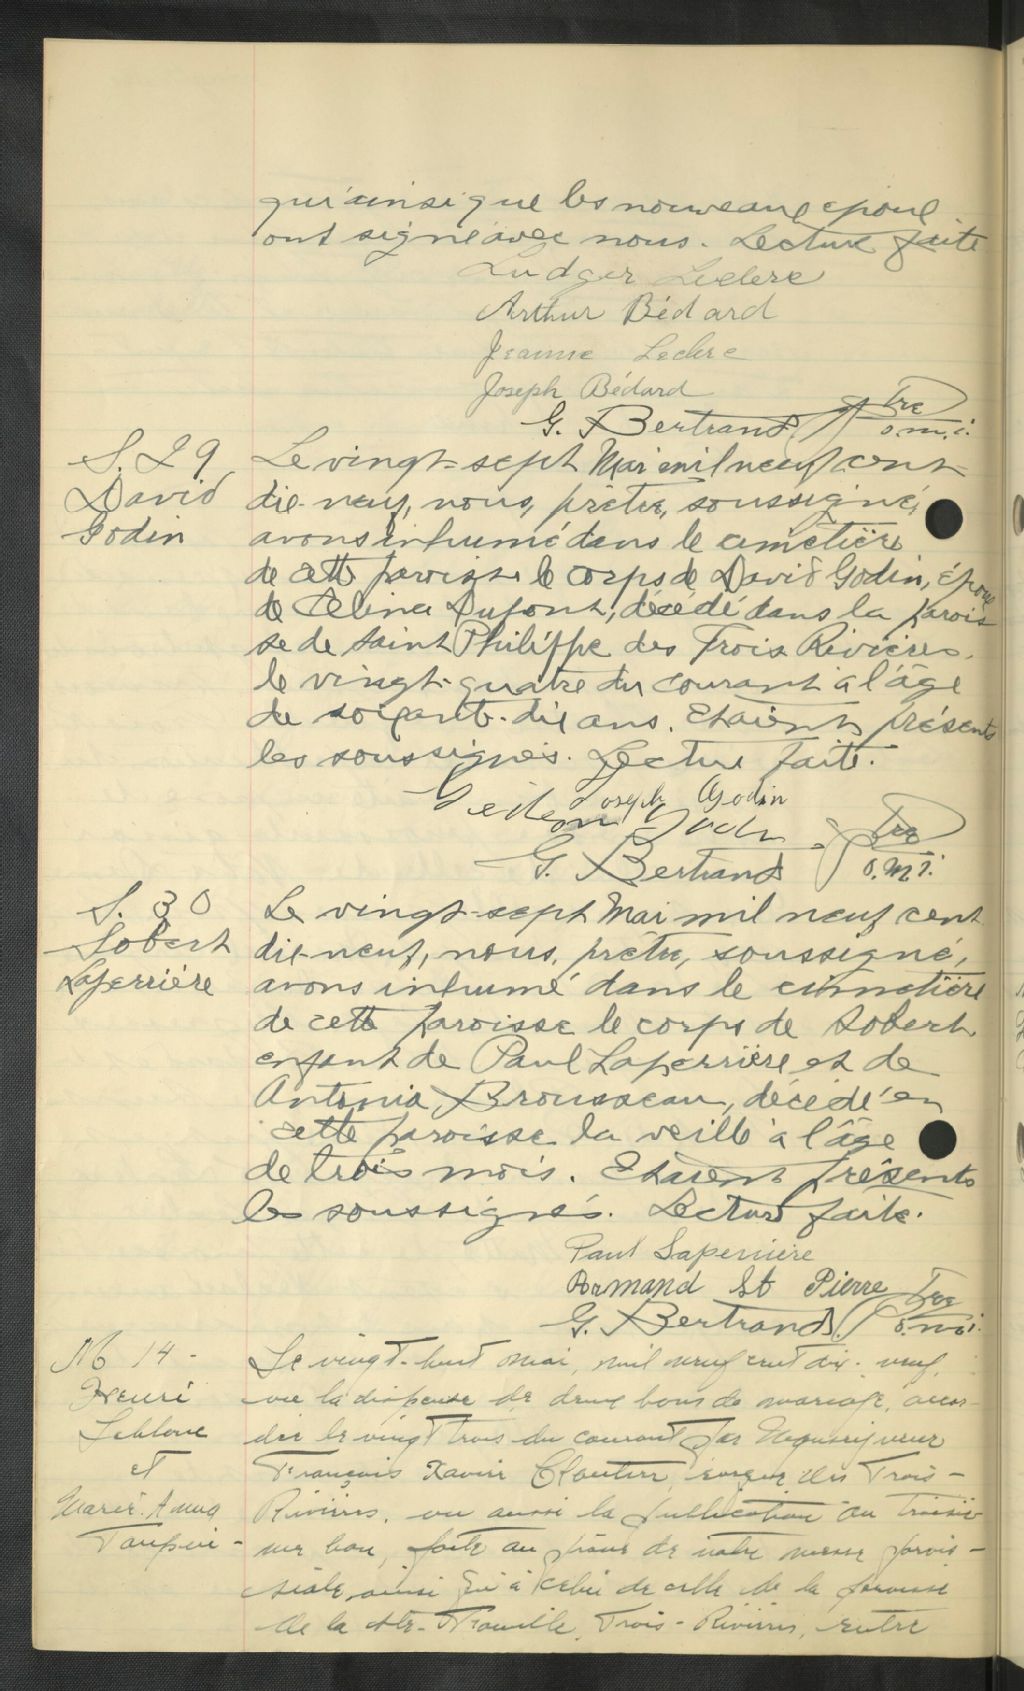 qu'ainsi que les nouveaux époux
ont signé avec nous. Lecture faite
Ludger Leclerc
Arthur Bédard
Jeanne Leclerc
Joseph Bédard
G. Bertrand Ptre
o.m.i.
S. 29
David
Godin
Le vingt-sept Mai mil neuf cent
dix-neuf, nous, prêtre, soussigné,
avons inhumé dans le cimetière
de cette paroisse le corps de David Godin, époux
de Célina Dupont, décédé dans la parois
se de Saint Philippe des Trois Rivières,
le vingt-quatre du courant à l'âge
de soixante-dix ans. Etaient présents
les soussignés. Lecture faite.
Joseph Godin
Gédéon Godin
G. Bertrand Ptre
o.m.i.
S. 30
Robert
Laperrière
Le vingt-sept Mai mil neuf cent
dix-neuf, nous, prêtre, soussigné,
avons inhumé dans le cimetière
de cette paroisse le corps de Robert
enfant de Paul Laperrière et de
Antonia Brousseau, décédé en
cette paroisse la veille à l'âge
de trois mois. Etaient présents
les soussignés. Lecture faite.
Paul Laperrière
Armand St Pierre
G. Bertrand Ptre
o.m.i.
M 14 -
Henri
Leblanc
et
Marie-Anna
Le vingt-huit mai, mil neuf cent dix-neuf,
vu la dispense de deux bans de mariage, accor-
dée le vingt trois du courant par Monseigneur
François Xavier Cloutier, évêque des Trois-
Rivières, vu aussi la publication du troisiè-
me ban, faite au prône de notre messe parois-
siale, ainsi qu'à celui de celle de la paroisse
de la Ste-Famille, Trois-Rivières, entre